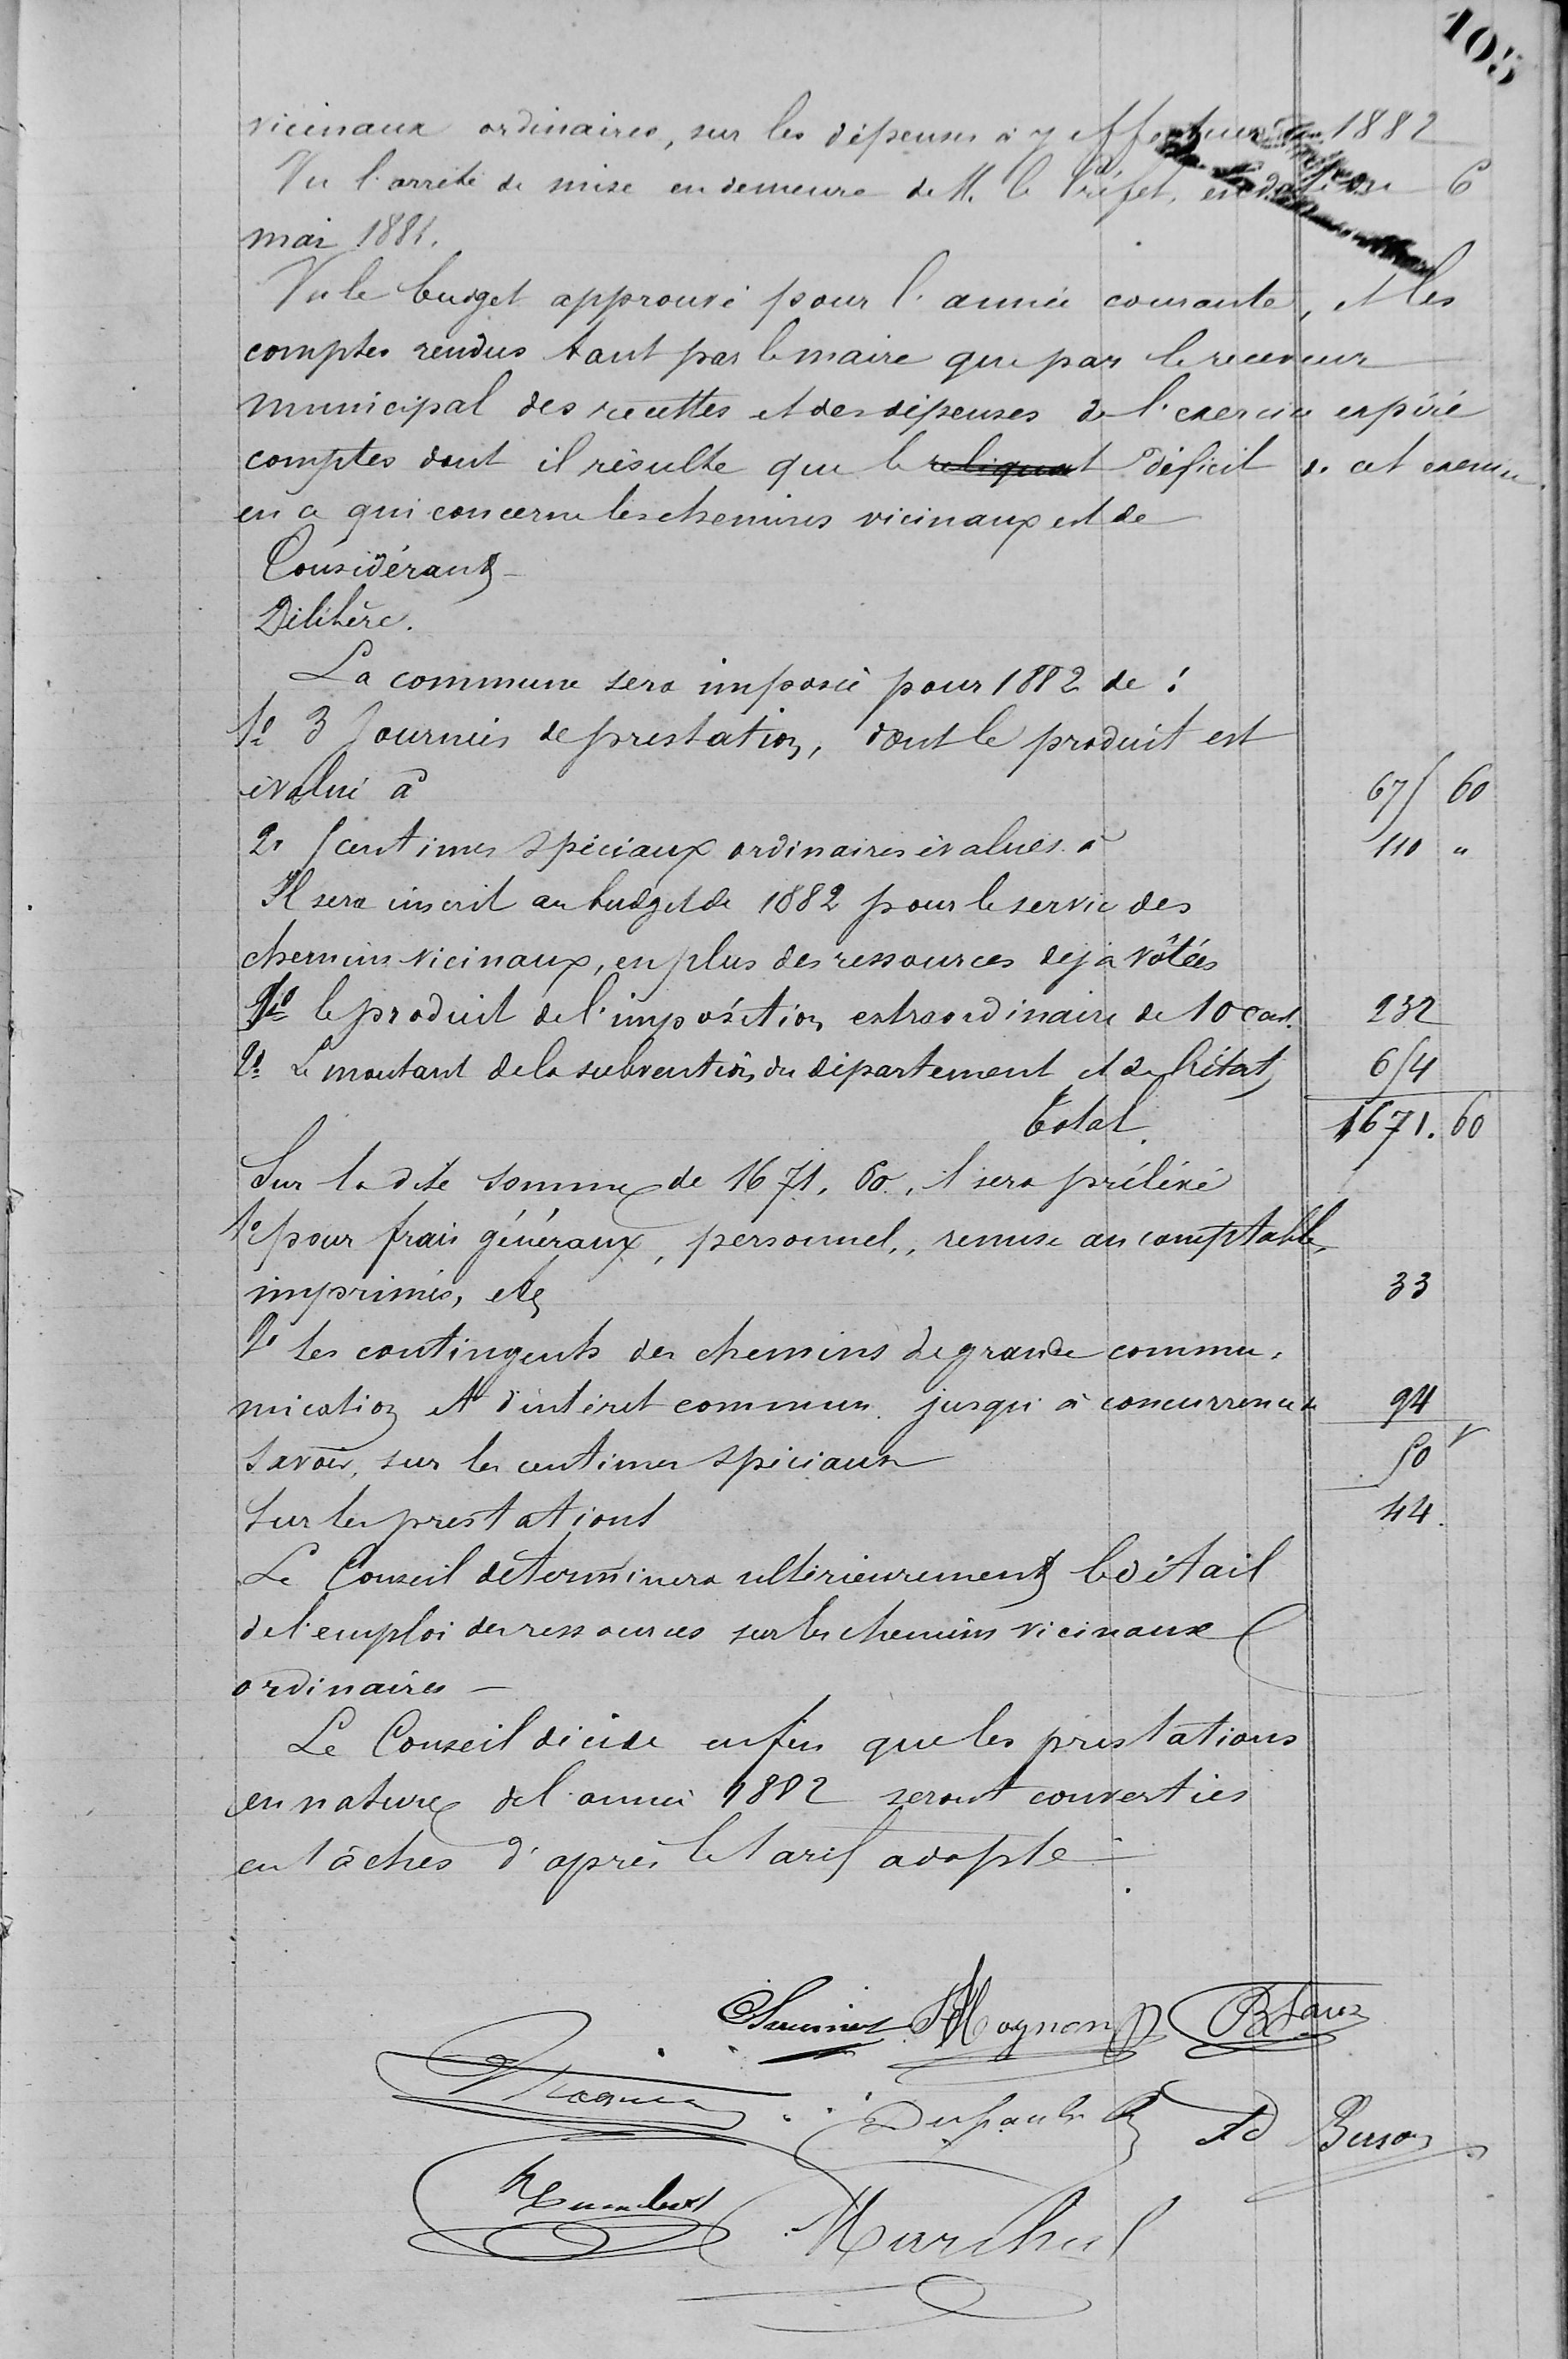 105
vicinaux ordinaires, sur les dépenses à y effectuer en 1882
Vu l'arrêté de mise en demeure de M. le Préfet, en date du 6
mai 1881.
Vu le budget approuvé pour l'année courante, et les
comptes rendus tant par le maire que par le receveur
municipal des recettes et des dépenses de l'exercice expiré
comptes dont il résulte que le reliquat déficit de cet exercice
en ce qui concerne les chemins vicinaux est de
Considérant
Délibère.
La commune sera imposée pour 1882 de :
1º 3 Journées de prestation, dont le produit est
évalué à 675 60
2º 5 centimes spéciaux ordinaires évalués à 110 "
Il sera inscrit au budget de 1882 pour le service des
chemins vicinaux, en plus des ressources déjà vôtées
1º le produit de l'imposition extraordinaire de 10 cent. 232
2º Le montant de la subvention du département et de l'état 654
Total. 1671. 60
Sur la dite somme de 1671. 60, il sera prélévé
1º pour frais généraux, personnel, remise au comptable,
imprimés, etc 33
2º les contingents des chemins de grande commu-
nication et d'intérêt commun jusqu'à concurrence de 94
savoir, sur les centimes spéciaux 50
sur les prestations 44.
Le Conseil déterminera ultérieurement le détail
de l'emploi des ressources sur les chemins vicinaux
ordinaires —
Le Conseil décide enfin que les prestations
en nature de l'année 1882 seront converties
en tâches d'après le tarif adopté
Mognon
Humbert Marchal